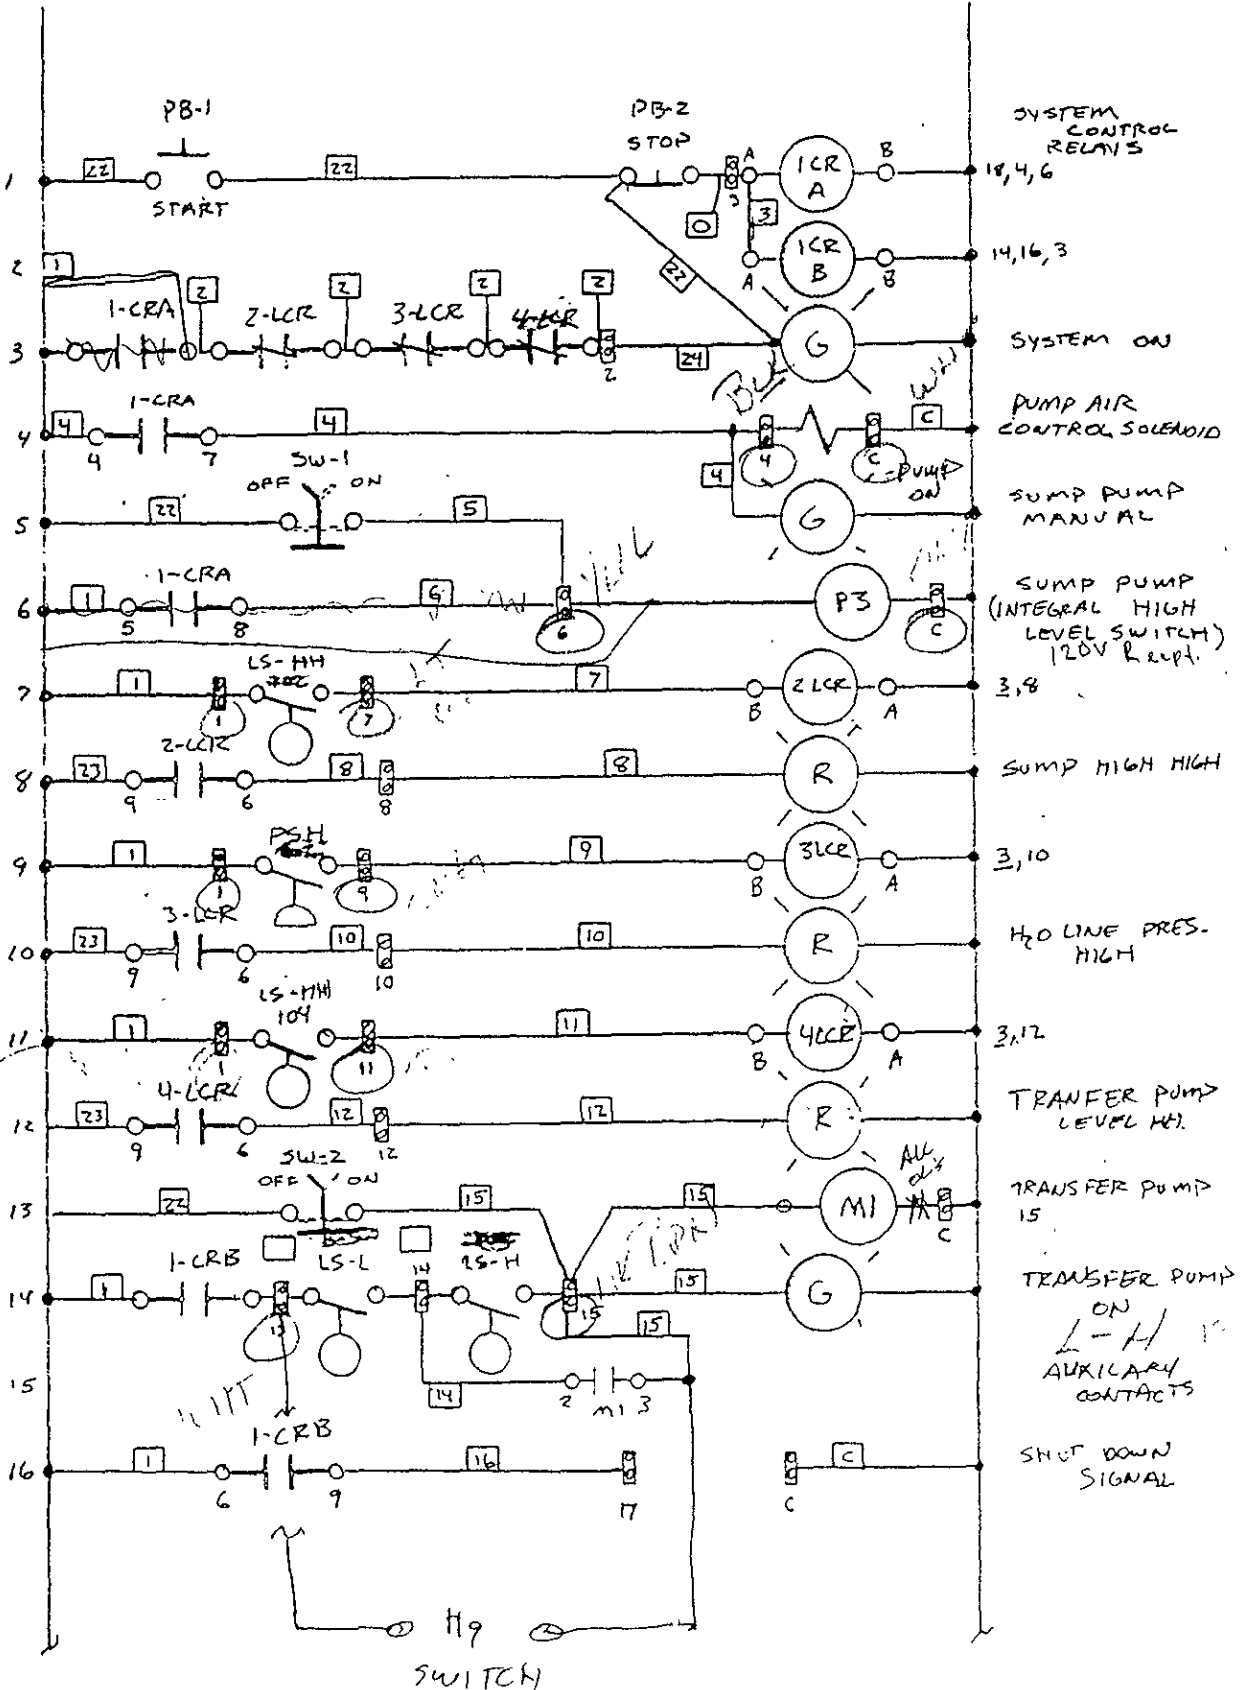 PB-1
PB-2
STOP
SYSTEM
CONTROL
RELAYS
1
22
START
22
O
3
A
3
1CR
A
B
18,4,6
2
1
22
A
1CR
B
B
14,16,3
3
1-CRA
2
2-LCR
2
3-LCR
2
4-LCR
2
2
24
G
SYSTEM ON
4
4
4
1-CRA
7
4
4
C
C
PUMP AIR
CONTROL SOLENOID
SW-1
OFF
ON
4
PUMP
ON
5
22
5
G
SUMP PUMP
MANUAL
6
1
5
1-CRA
8
6
6
P3
C
SUMP PUMP
(INTEGRAL HIGH
LEVEL SWITCH)
120V Recpt.
7
1
1
LS-HH
7
7
B
2LCR
A
3,8
8
23
9
2-LCR
6
8
8
8
R
SUMP HIGH HIGH
9
1
1
PSH
9
9
B
3LCR
A
3,10
10
23
9
3-LCR
6
10
10
10
R
H2O LINE PRES.
HIGH
11
1
1
LS-HH
104
11
11
B
4LCR
A
3,12
12
23
9
4-LCR
6
12
12
12
R
TRANFER PUMP
LEVEL HH.
13
22
SW-2
OFF
ON
15
15
M1
C
TRANSFER PUMP
15
14
1
1-CRB
13
LS-L
14
LS-H
15
15
G
TRANSFER PUMP
ON
L-H
15
15
14
2
M1
3
AUXILARY
CONTACTS
16
1
6
1-CRB
9
16
17
C
C
SHUT DOWN
SIGNAL
Hg
SWITCH